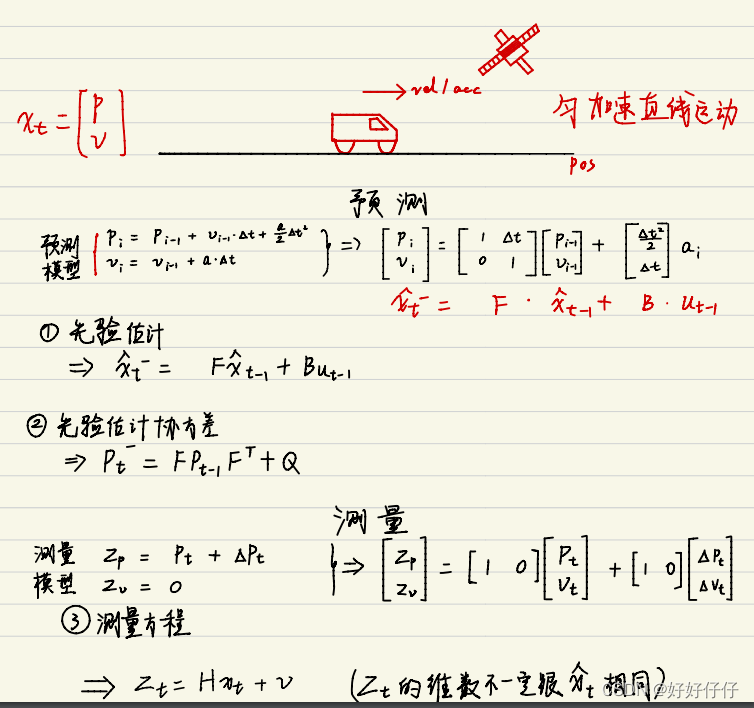 x_t = [p v]
vel / acc
匀加速直线运动
pos
预测
预测模型 { p_i = p_{i-1} + v_{i-1}·Δt + a/2 Δt²
v_i = v_{i-1} + a·Δt } => [p_i v_i] = [1 Δt 0 1] [p_{i-1} v_{i-1}] + [Δt²/2 Δt] a_i
x̂_t⁻ = F · x̂_{t-1} + B · u_{t-1}
① 先验估计
=> x̂_t⁻ = F x̂_{t-1} + B u_{t-1}
② 先验估计协方差
=> P_t⁻ = F P_{t-1} F^T + Q
测量
测量模型 Z_p = P_t + ΔP_t
Z_v = 0 } => [Z_p Z_v] = [1 0] [P_t V_t] + [1 0] [ΔP_t ΔV_t]
③ 测量方程
=> Z_t = H x_t + v (Z_t的维数不一定跟 x̂_t 相同)
CSDN @好好仔仔